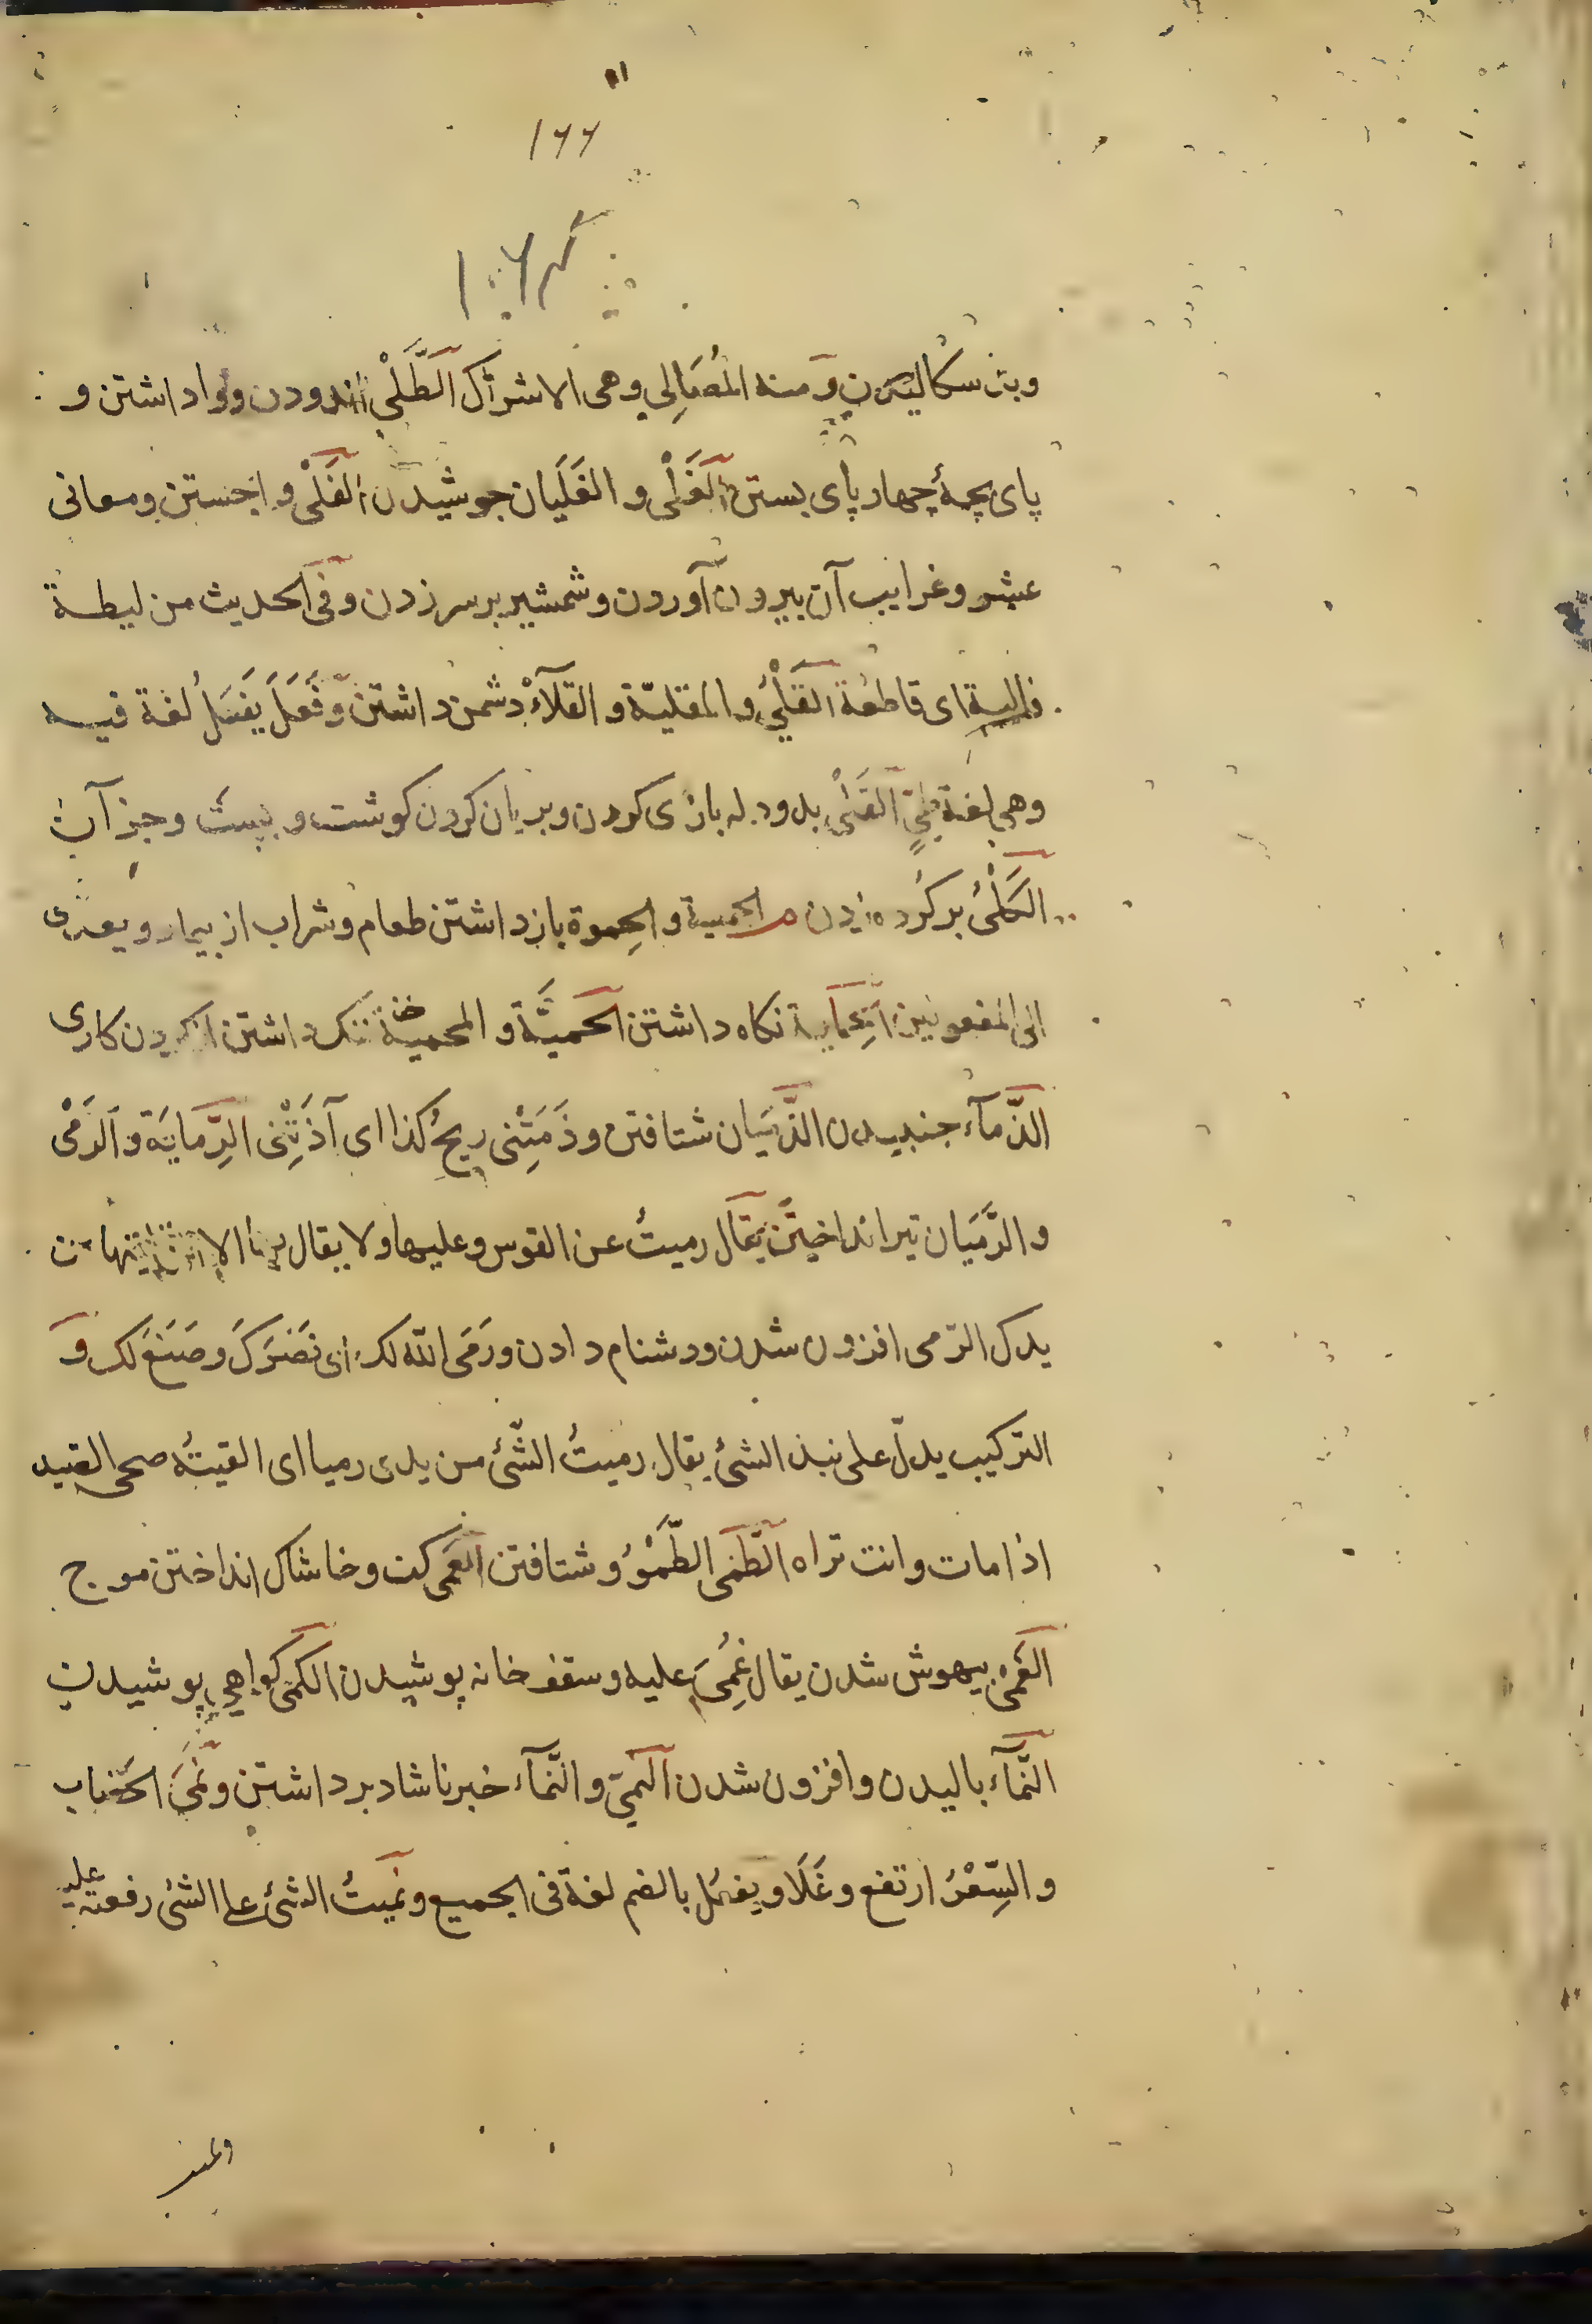 ۱۶۶
وبد سکالیدن ومنه المُصَالِي وهى الاشراك الطَّلْىُ اندودن ووا داشتن و
پاى بچهٔ چهار پاى بستن الغَلْىُ و الغَلَيان جوشيدن الفَلْىُ واجستن ومعانى
شعر وغرايب آن بيرون آوردن وشمشير بر سر زدن وفى الحديث من ليطة
فالية اى قاطعة القَلْىُ والمقلية و القلآءُ دشمن داشتن وفَعَلَ يَفعَلُ لغة فيه
وهى لغة طىّ القَلْىُ بدودله بازى كردن وبريان كردن كوشت و وجز آن
الكَلْىُ بر كرده زدن الحمية و الحِموة باز داشتن طعام وشراب از بيمار ويعدى
الى المفعولين الحِماية نكاه داشتن الحَميَّة و المحمية ننك داشتن از كردن كارى
الذَّمآء جنبيدن الذَّمَيان شتافتن وذَمَتْنِى ريحُ كذا اى آذَتْنِى الرِّمايَة و الرَمْى
و الرَّمَيان تير انداختن يقال رميتُ عن القوس وعليها ولا يقال بها الا
يدك الرّمى افزون شدن ودشنام دادن ورَمَى الله لك اى نَصَرَكَ وصَنَعَ لك و
التركيب يدلّ على نبذ الشئ يقال رميتُ الشّئ من يدى رميا اى القيتُه صمى الصيد
اذا مات وانت تراه الطَمْى الطُّمُوُّ و شتافتن العَمْى كف وخاشاك انداختن موج
الغَمْى بيهوش شدن يقال غُمِىَ عليه وسقف خانه پوشيدن الكَمْى كواهى پوشيدن
النَّمآء باليدن وافزون شدن النمىّ و النَّمآء خبر ناشاد برداشتن ونَمَى الخضاب
و السِّعْرُ ارتفع وغَلَا ويفعُل بالضم لغة فى الجميع ونميتُ الشئ على الشئ رفعته عليه